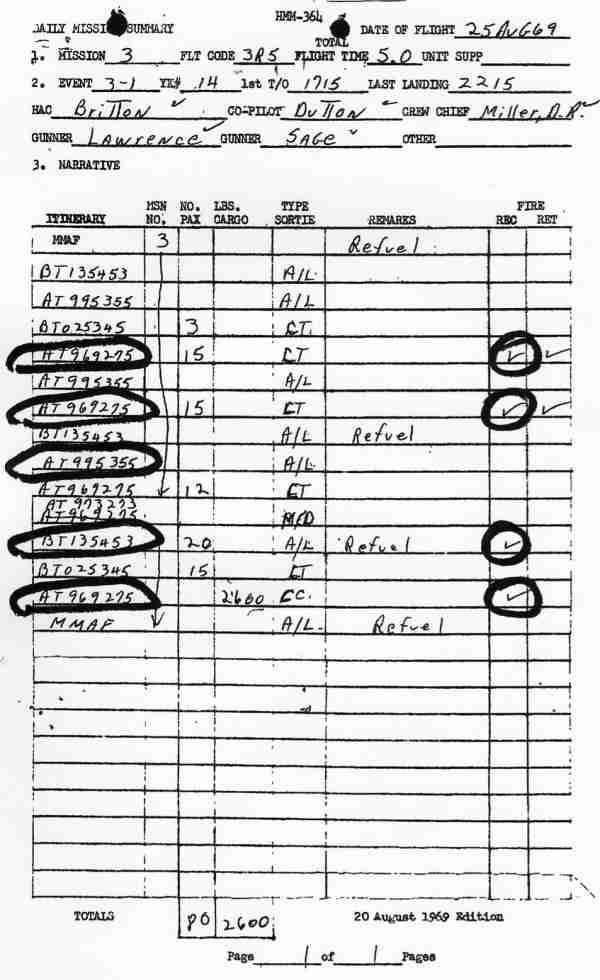 HMM-364
DAILY MISSION SUMMARY DATE OF FLIGHT 25 AUG 69
TOTAL
1. MISSION 3 FLT CODE 3R5 FLIGHT TIME 5.0 UNIT SUPP
2. EVENT 3-1 YK# 14 1st T/O 1715 LAST LANDING 2215
HAC Britton ✓ CO-PILOT Dutton ✓ CREW CHIEF Miller, D.R. ✓
GUNNER Lawrence ✓ GUNNER SAGE ✓ OTHER
3. NARRATIVE
MSN NO. LBS. TYPE FIRE
ITINERARY NO. PAX CARGO SORTIE REMARKS REC RET
MMAF 3 Refuel
BT135453 A/L
AT995355 A/L
BT025345 3 CT.
AT969275 15 CT ✓ ✓
AT995355 A/L
AT969275 15 CT ✓ ✓
BT135453 A/L Refuel
AT995355 A/L
AT969275 12 CT
AT973273
AT969275 M/D
BT135453 20 A/L Refuel ✓
BT025345 15 CT
AT969275 2600 CC. ✓
MMAF A/L. Refuel
TOTALS 80 2600 20 August 1969 Edition
Page 1 of 1 Pages